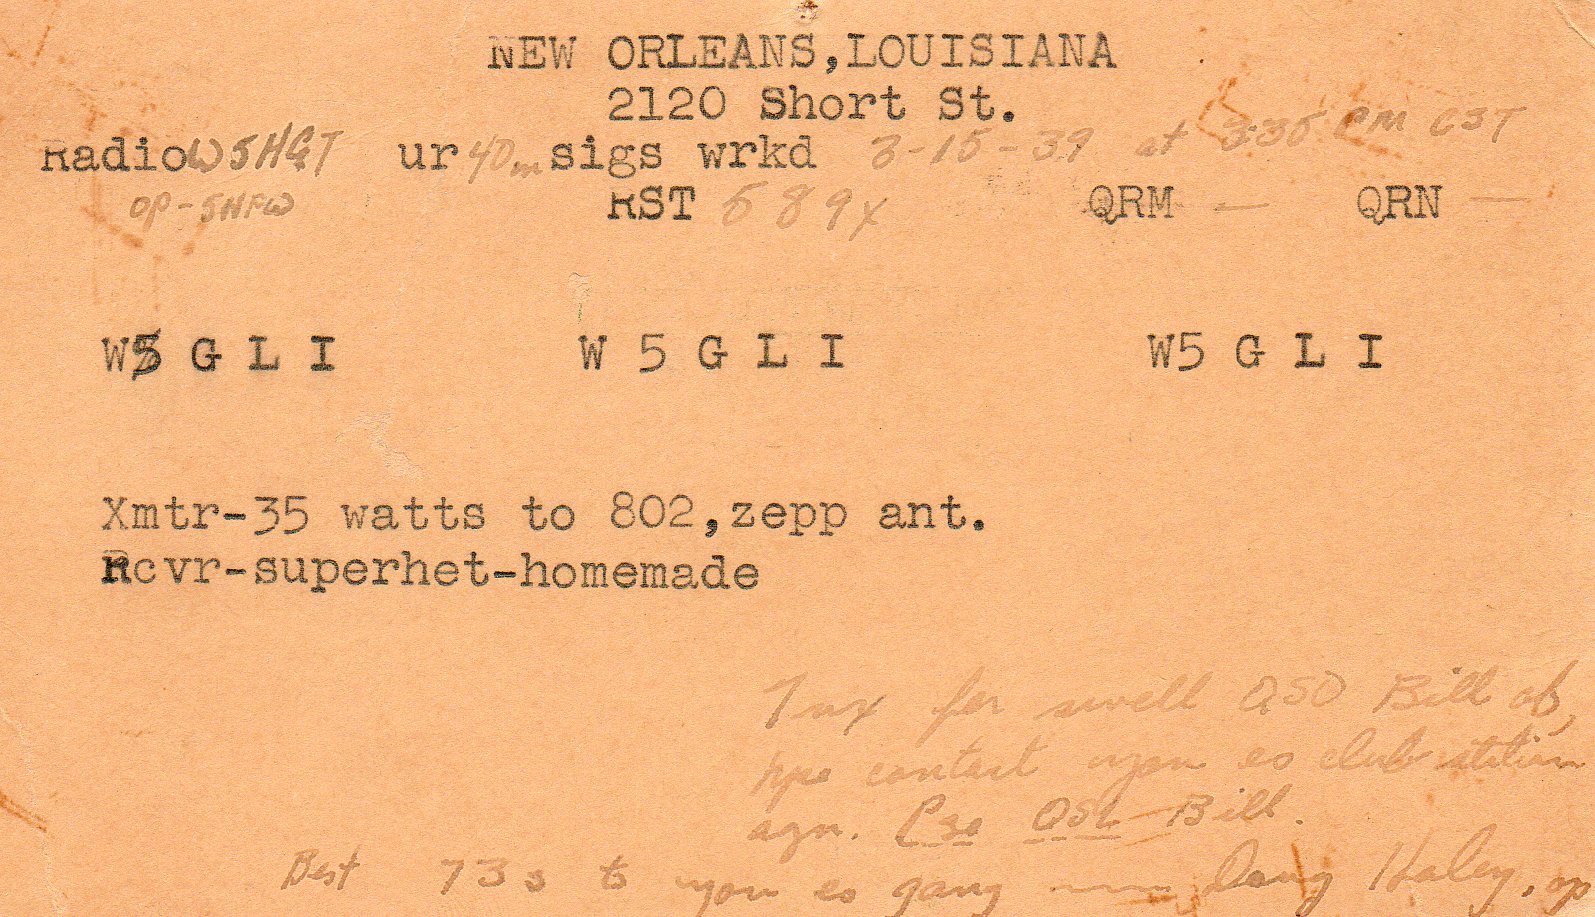 NEW ORLEANS,LOUISIANA
2120 Short St.
RadioW5HGT ur 40m sigs wrkd 3-15-39 at 3:35 PM CST
OP-5HFW RST 589x QRM — QRN —
W5 G L I W 5 G L I W5 G L I
Xmtr-35 watts to 802,zepp ant.
Rcvr-superhet-homemade
Tnx for swell QSO Bill ob,
hpe contact u es club station
agn. Pse QSL Bill.
Best 73s to you es gang — Doug Haley, op